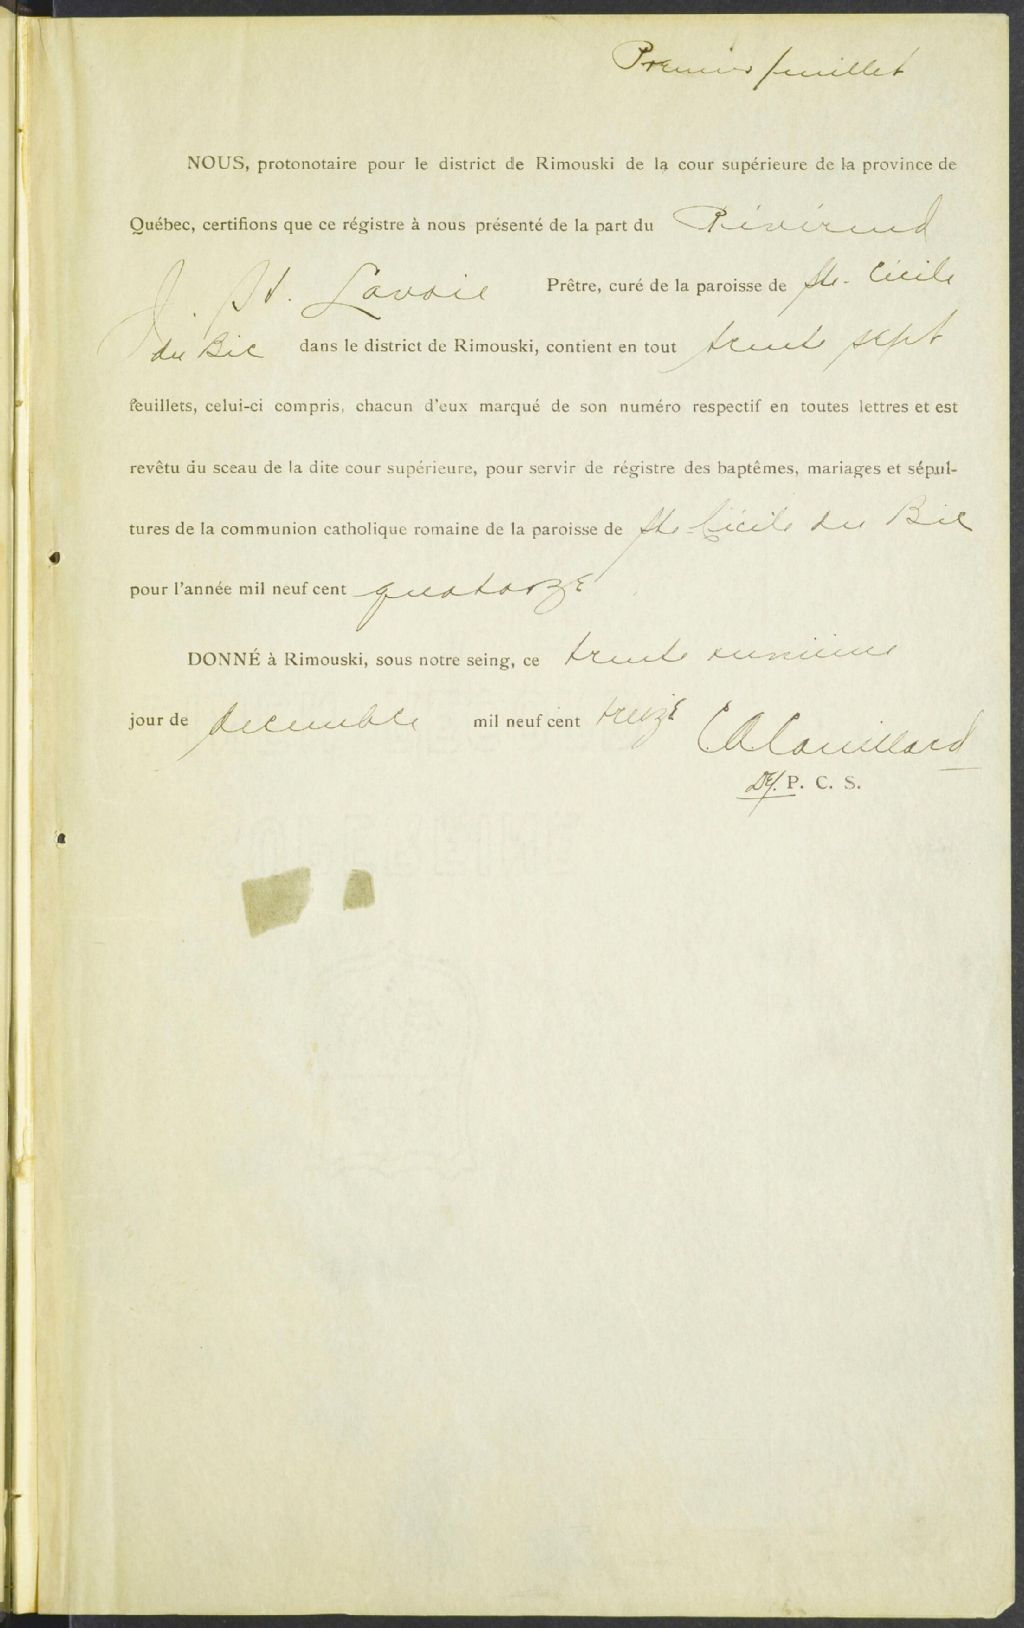 Premier feuillet
NOUS, protonotaire pour le district de Rimouski de la cour supérieure de la province de
Québec, certifions que ce régistre à nous présenté de la part du Révérend
J. Lavoie Prêtre, curé de la paroisse de Ste. Cécile
du Bic dans le district de Rimouski, contient en tout trente sept
feuillets, celui-ci compris, chacun d'eux marqué de son numéro respectif en toutes lettres et est
revêtu du sceau de la dite cour supérieure, pour servir de régistre des baptêmes, mariages et sépul-
tures de la communion catholique romaine de la paroisse de Ste Cécile du Bic
pour l'année mil neuf cent quatorze
DONNÉ à Rimouski, sous notre seing, ce trente unième
jour de decembre mil neuf cent treize
Couillard
P. C. S.